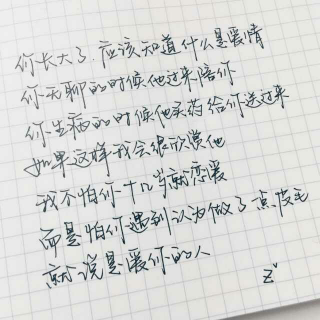 你长大了，应该知道什么是爱情
你无聊的时候他过来陪你
你生病的时候他买药给你送过来
如果这样我会很欣赏他
我不怕你十几岁就恋爱
而是怕你遇到认为做了一点皮毛
就说是爱你的人
Z